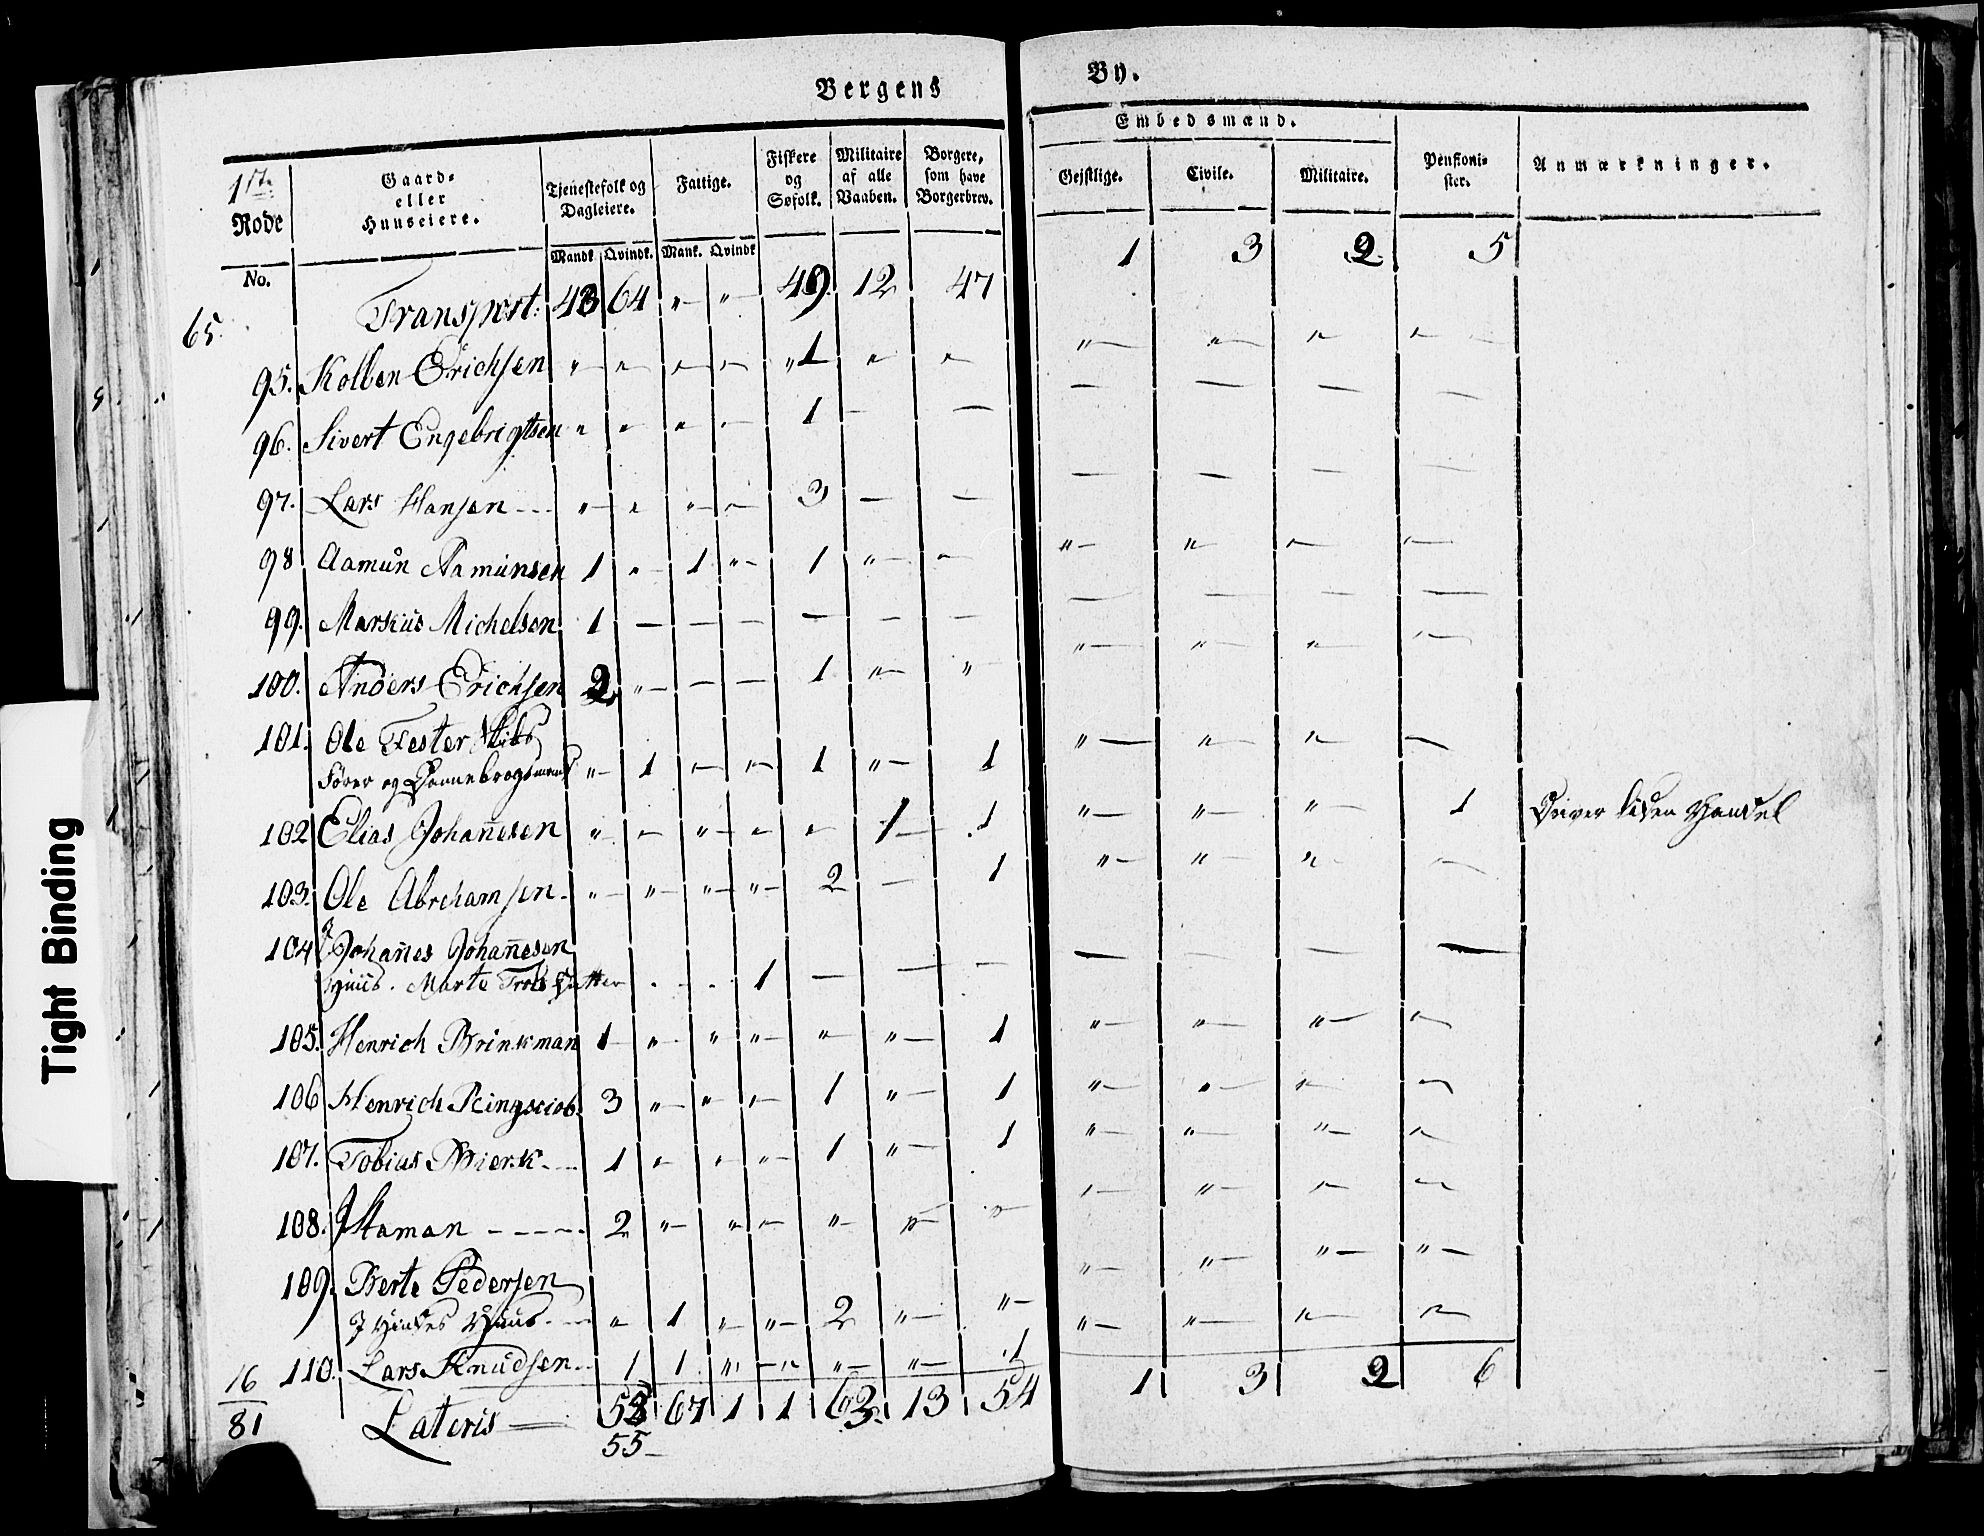 Bergens By.
1ste Rode No.
Gaard- eller Huuseiere.
Tjenestefolk og Dagleiere. Mandk. Qvindk.
Fattige. Mank. Qvindk
Fiskere og Søfolk.
Militaire af alle Vaaben.
Borgere, som have Borgerbrev.
Embedsmænd.
Gejstlige. Civile. Militaire.
Pensionister.
Anmærkninger.
65. Transport: 43 64 " " 49 12 47 1 3 2 5
95. Kolben Erichsen " " " " 1 " " " " " "
96. Sivert Engebrigtsen " " " " 1 — — — — — —
97. Lars Hansen " " " " 3 — — — — — —
98 Aamun Aamunsen 1 " 1 " 1 " " " " " "
99. Markus Michelsen 1 — — — — — — — — — —
100. Anders Erichsen 2 " — — 1 " " " " " "
101. Ole Fester
Fører og Dannebrogsmand " 1 " " 1 " 1 " " " "
102 Elias Johannesen " " " " " 1 1 " " " 1 Driver liden Handel
103. Ole Abrehamsen " " " " 2 — 1 " " " "
104 Johannes Johannesen
Huus. Marte Datter . . . 1 — — — — — — —
105. Henrich Brinkman 1 " " " " " 1 " " " "
106 Henrich Ringsciob 3 " " " 1 " 1 " " " "
107. Tobias Bierk 1 " " " 1 " 1 " " " "
108. Haman 2 " " " " " " " " " "
109. Berte Pedersen
J Huus " 1 " " 2 " " " " " "
110. Lars Knudsen 1 1 " " " " 1 " " " "
16
81 Lateris 53 67 1 1 63 13 54 1 3 2 6
55
Tight Binding